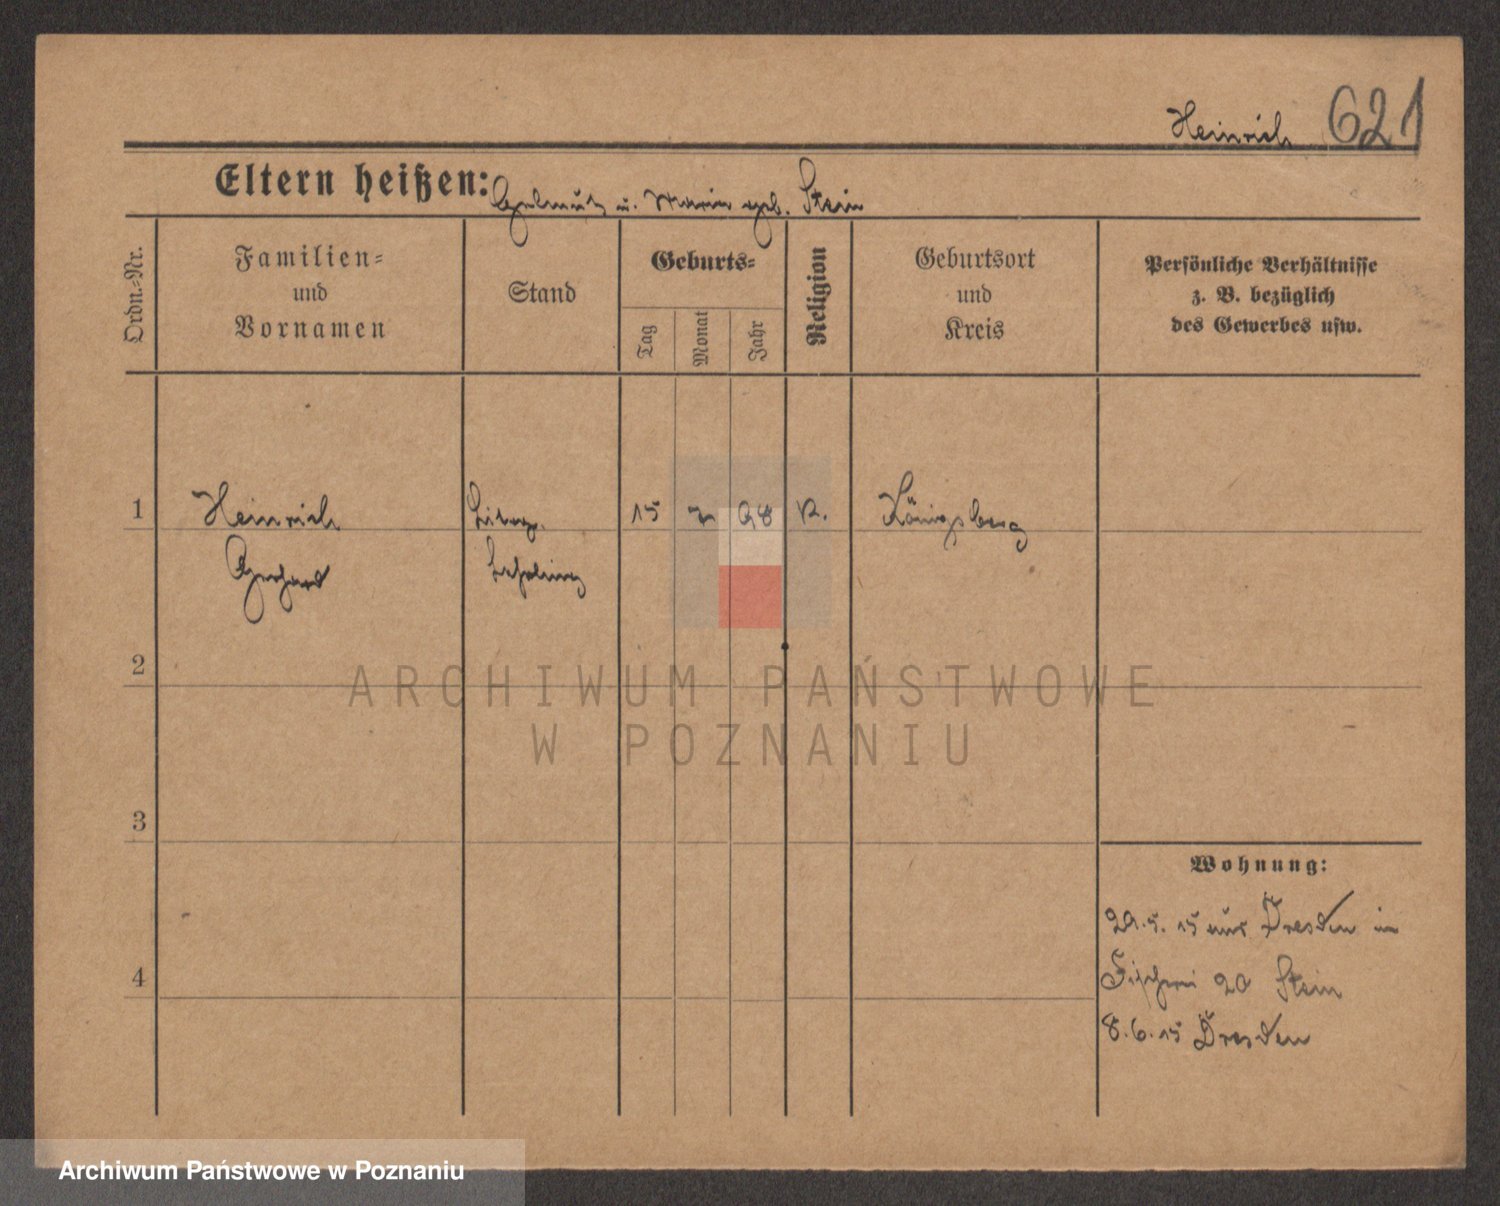 Heinrich 621
Eltern heißen: Helmuth u. Marie geb. Stein
Ordn.-Nr.
Familien-
und
Vornamen
Stand
Geburts-
Tag
Monat
Jahr
Religion
Geburtsort
und
Kreis
Persönliche Verhältnisse
z. B. bezüglich
des Gewerbes usw.
1 Heinrich 15 98 Königsberg
Gerhard Lehrling
2
3
4
Wohnung:
29.5.15 aus Dresden in
Fischerei 20 Stein
8.6.15 Dresden
ARCHIWUM PAŃSTWOWE
W POZNANIU
Archiwum Państwowe w Poznaniu